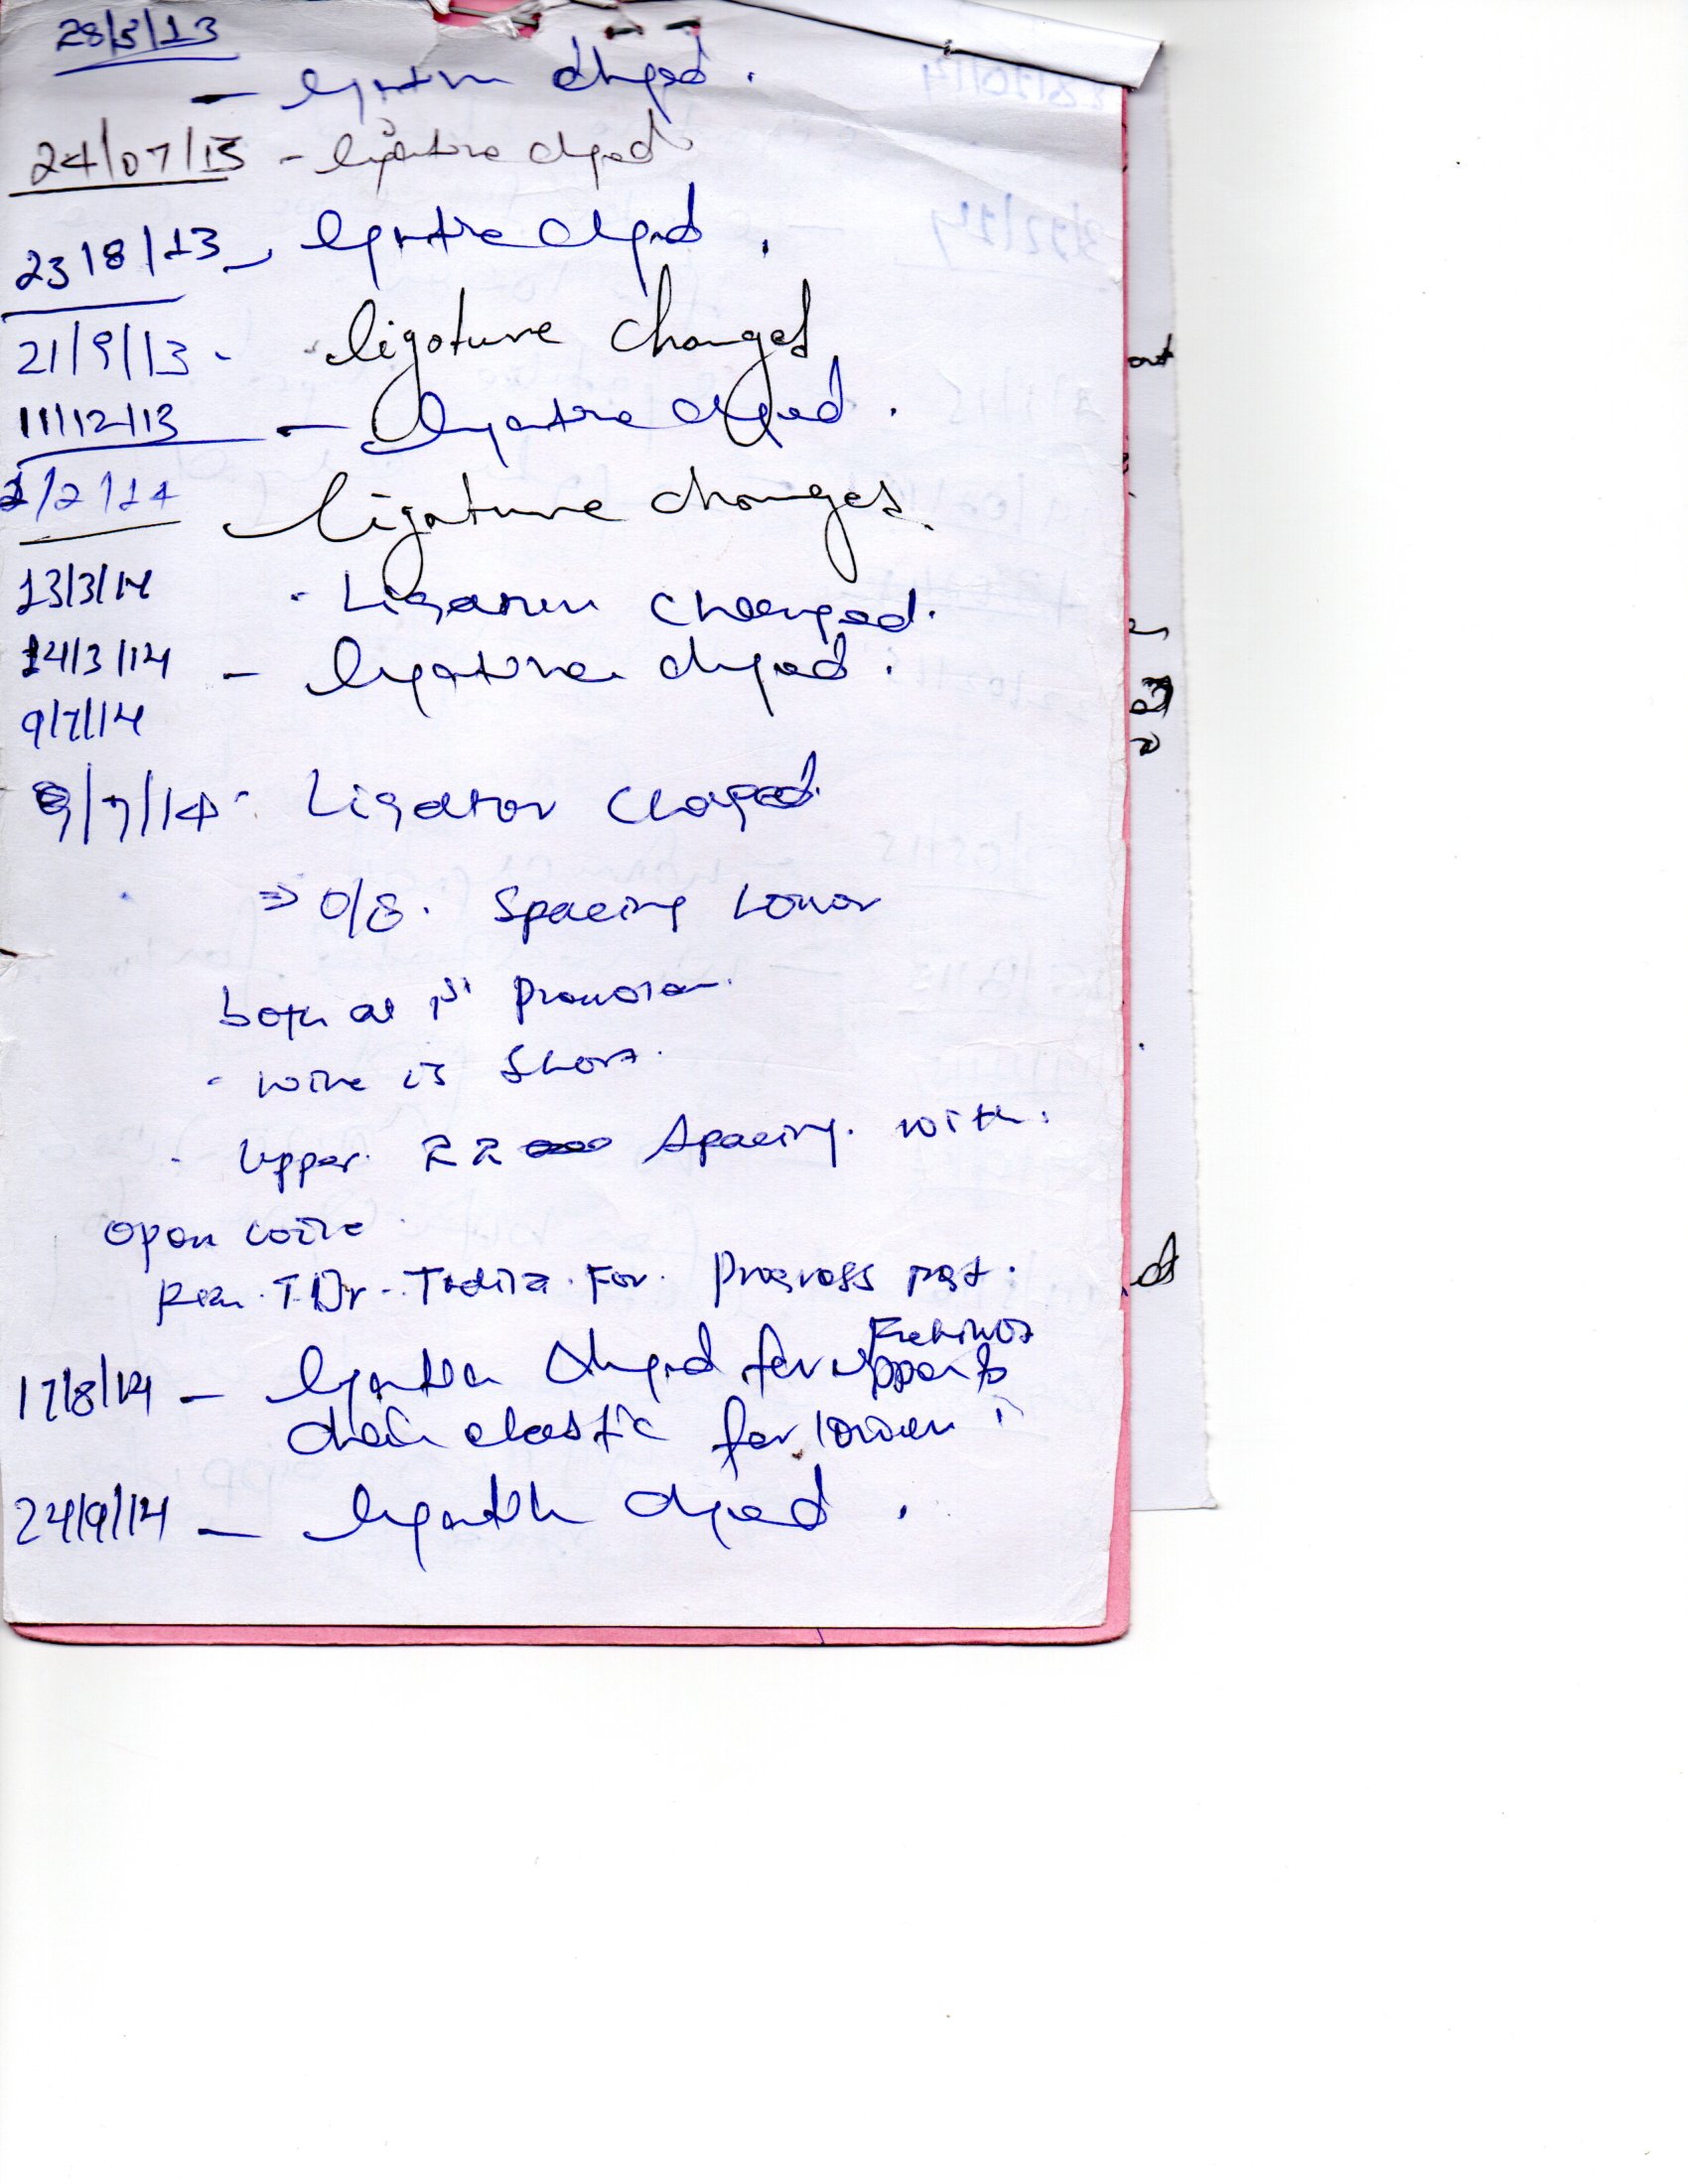 28/3/13
- ligature changed.
24/07/13 - ligature changed
23/8/13 - ligature changed.
21/9/13 - ligature changed
11/12/13 - ligature changed.
1/2/14 ligature changed.
13/3/14 - Ligature changed.
14/3/14 - ligature changed.
9/7/14
9/7/14 - Ligature changed
⇒ O/E. Spacing Lower
both at 1st Premolar.
- wire is short.
- Upper Spacing. with.
open coil
For. Progress
17/8/14 - ligature changed for upper &
chain elastic for lower
24/9/14 - ligature changed.